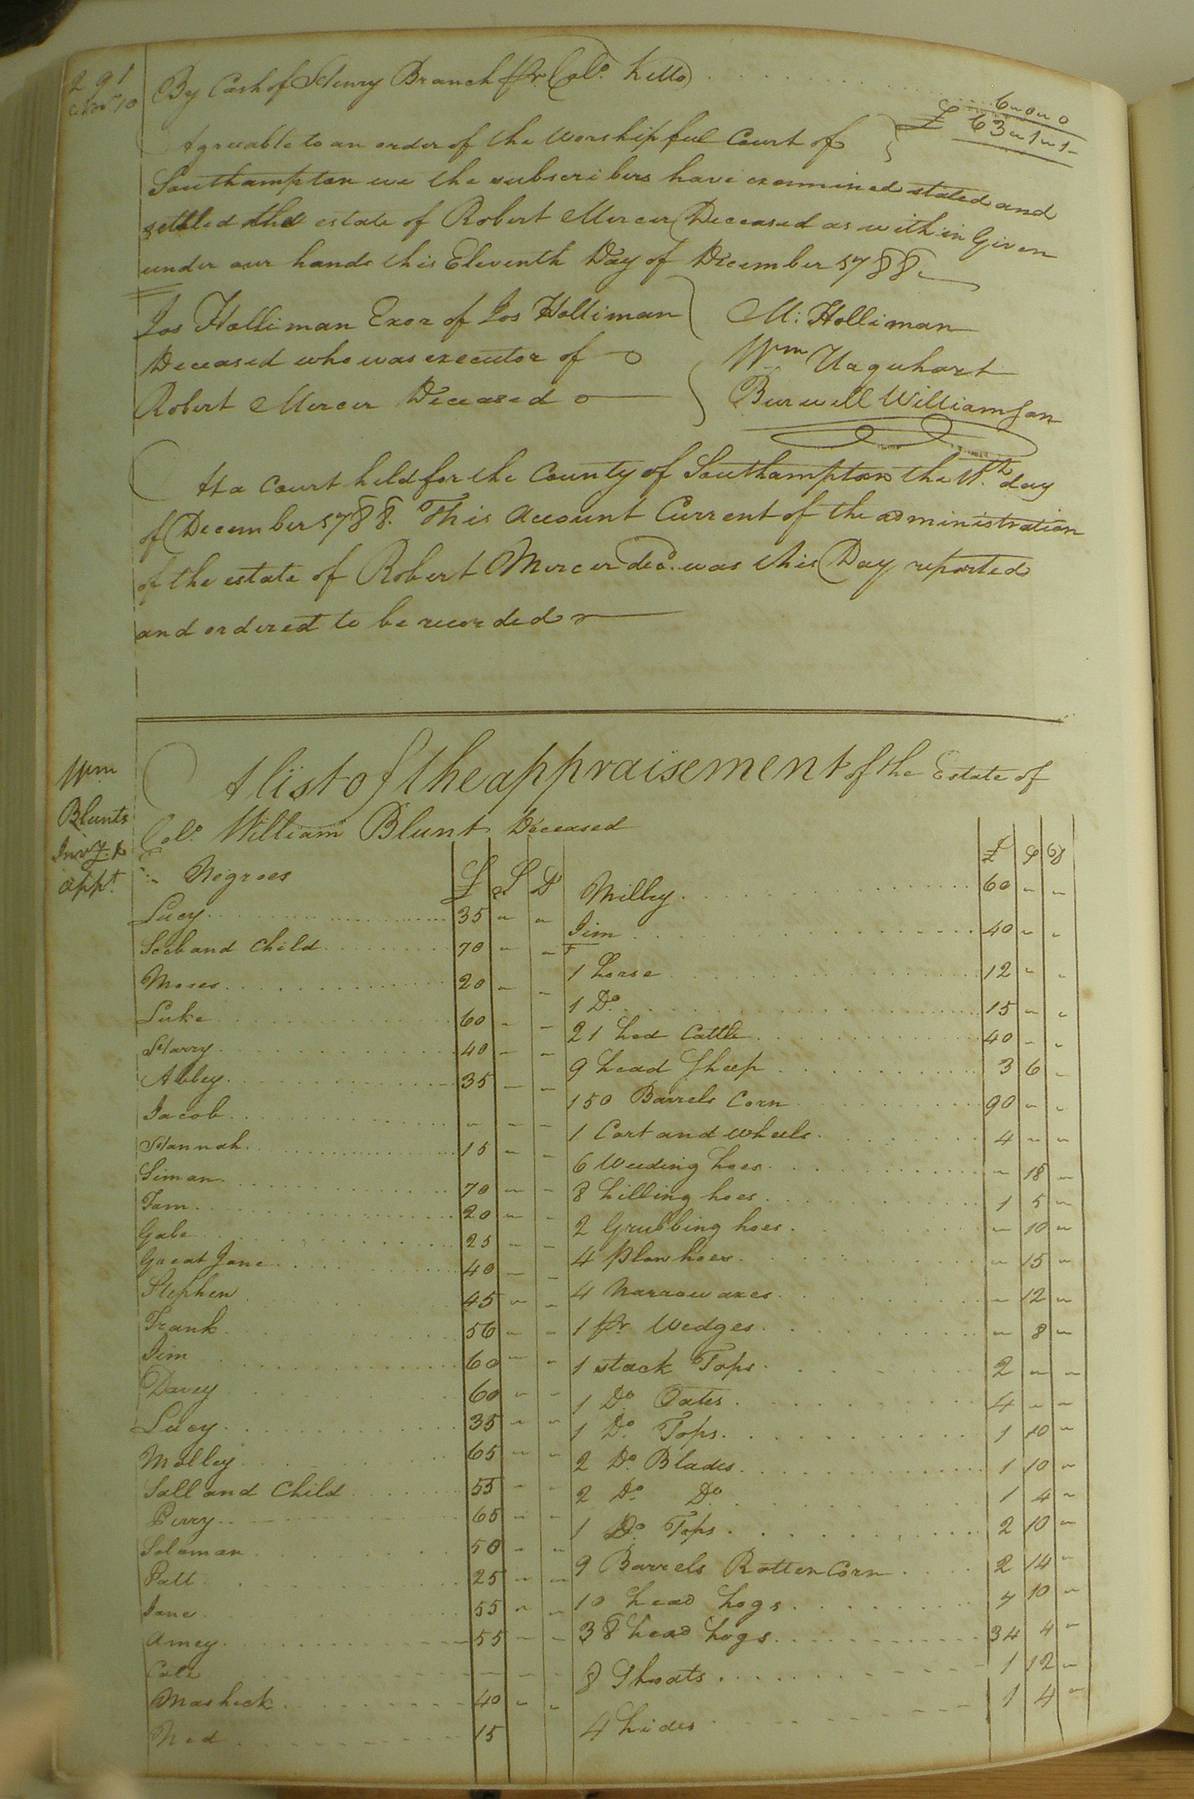 291
Novr 10
By Cash of Henry Branch pr Colo. Kello
6 " 0 " 0
£ 63 " 1 " 1
Agreeable to an order of the Worshipful Court of
Southampton we the subscribers have examined stated and
settled the estate of Robert Mercer Deceased as within Given
under our hands this Eleventh Day of December 1788
Jos Holliman Exor of Jos Holliman
Deceased who was executor of
Robert Mercer Deceased
M: Holliman
Wm Uaquhart
Burwell Williamson
At a Court held for the County of Southampton the 11th day
of December 1788. This Account Current of the administration
of the estate of Robert Mercer decd. was this Day reported
and ordered to be recorded
Wm
Blunts
Invy &
appt.
A list of the appraisement of the Estate of
Colo. William Blunt Deceased
Negroes £ S D
Lucy 35 " "
Seeb and Child 70 " "
Moses 20 " "
Luke 60 " "
Harry 40 " "
Abbey 35 " "
Jacob " " "
Hannah 15 " "
Siman 70 " "
Tom 20 " "
Gabe 25 " "
Great Jane 40 " "
Stephen 45 " "
Frank 50 " "
Jim 60 " "
Davey 60 " "
Lucy 35 " "
Molley 65 " "
Sall and Child 55 " "
Perry 65 " "
Soloman 50 " "
Patt 25 " "
Jane 55 " "
Amey 55 " "
Cate " " "
Masheck 40 " "
Ned 15
£ S D
Milley 60 " "
Jim 40 " "
1 horse 12 " "
1 Do. 15 " "
21 hed Cattle 40 " "
9 head Sheep 3 6 "
150 Barrels Corn 90 " "
1 Cart and wheels 4 " "
6 Weeding hoes " 18 "
8 hilling hoes 1 5 "
2 Grubbing hoes " 10 "
4 plow hoes " 15 "
4 Narrow axes " 12 "
1 pr Wedges " 8 "
1 stack Tops 2 " "
1 Do. Oates 4 " "
1 Do. Tops 1 10 "
2 Do. Blades 1 10 "
2 Do. Do. 1 4 "
1 Do. Tops 2 10 "
9 Barrels Rotten Corn 2 14 "
10 head hogs 7 10 "
38 head hogs 34 4 "
8 Shoats 1 12 "
4 hides 1 4 "